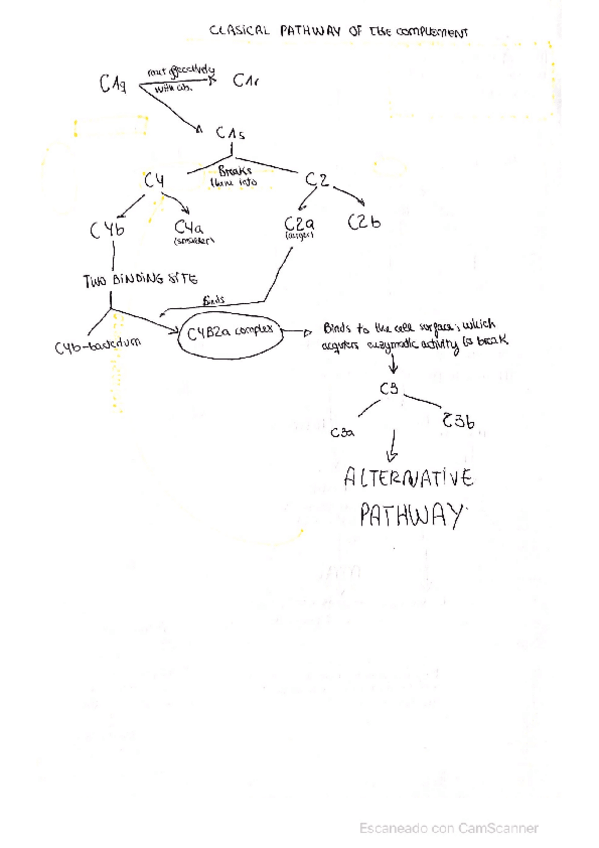 CLASICAL PATHWAY OF THE COMPLEMENT
C1q
C1r
with ab.
C1s
Breaks
them into
C4
C2
C4b
C4a
(smaller)
C2a
(larger)
C2b
TWO BINDING SITE
Binds
C4b-bacterium
C4B2a complex
Binds to the cell surface, which
acquiers enzymatic activity to break
C3
C3a
C3b
ALTERNATIVE
PATHWAY
Escaneado con CamScanner